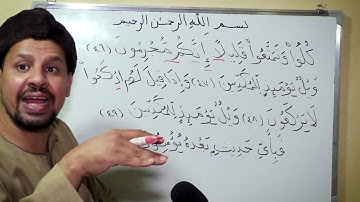 بسم اللهِ الرحمٰن الرحيم
كُلُوا وَتَمَتَّعُوا قَلِيلًا إِنَّكُم مُّجْرِمُونَ (٤٦)
وَيْلٌ يَوْمَئِذٍ لِّلْمُكَذِّبِينَ (٤٧) وَإِذَا قِيلَ لَهُمُ ارْكَعُوا
لَا يَرْكَعُونَ (٤٨) وَيْلٌ يَوْمَئِذٍ لِّلْمُكَذِّبِينَ (٤٩)
فَبِأَيِّ حَدِيثٍ بَعْدَهُ يُؤْمِنُونَ